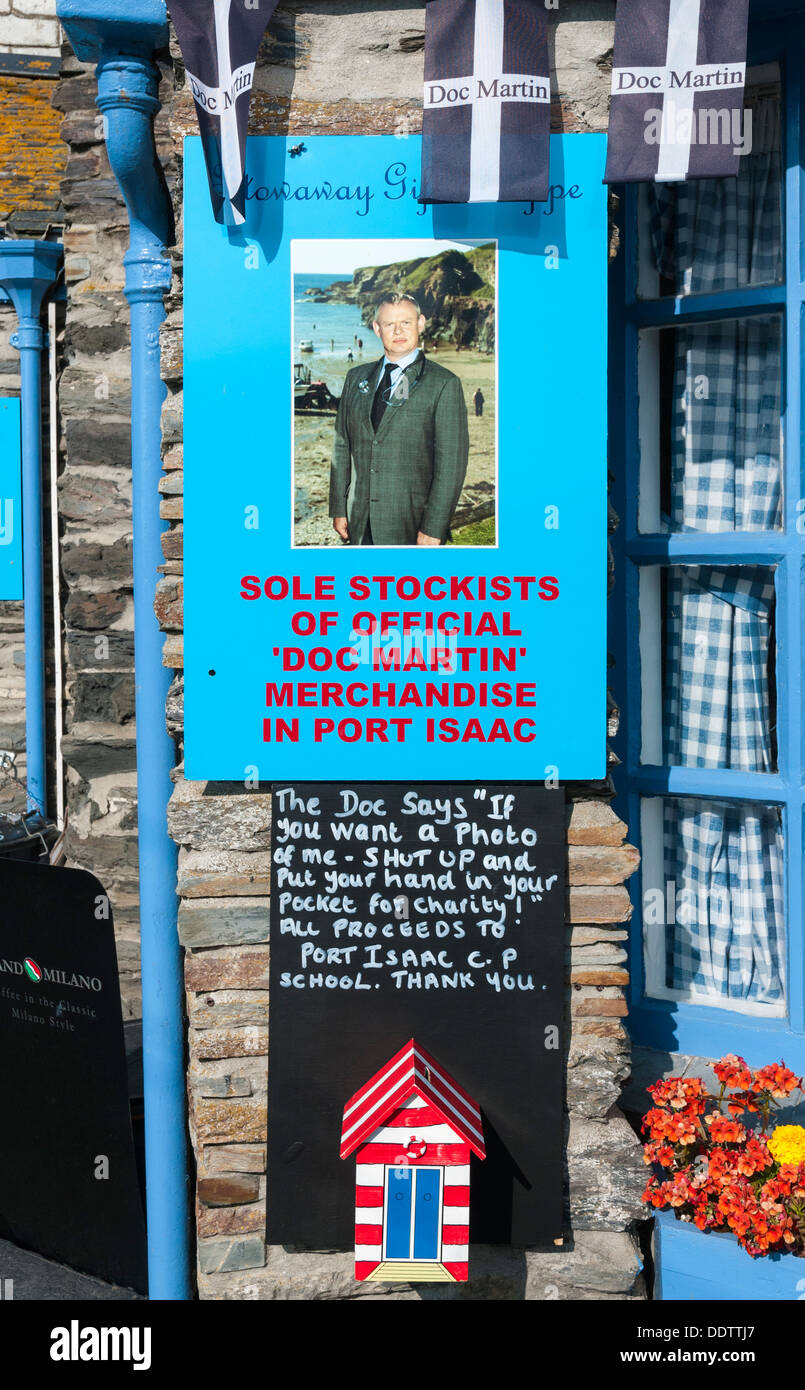 Doc Martin
Doc Martin
Doc Martin
Stowaway Gift Shoppe
SOLE STOCKISTS
OF OFFICIAL
'DOC MARTIN'
MERCHANDISE
IN PORT ISAAC
The Doc Says "If
you want a Photo
of me - SHUT UP and
Put your hand in your
Pocket for charity!"
ALL PROCEEDS TO
PORT ISAAC C.P
SCHOOL. THANK YOU.
AND MILANO
Coffee in the Classic
Milano Style
alamy
a alamy stock photo
DDTTJ7
www.alamy.com